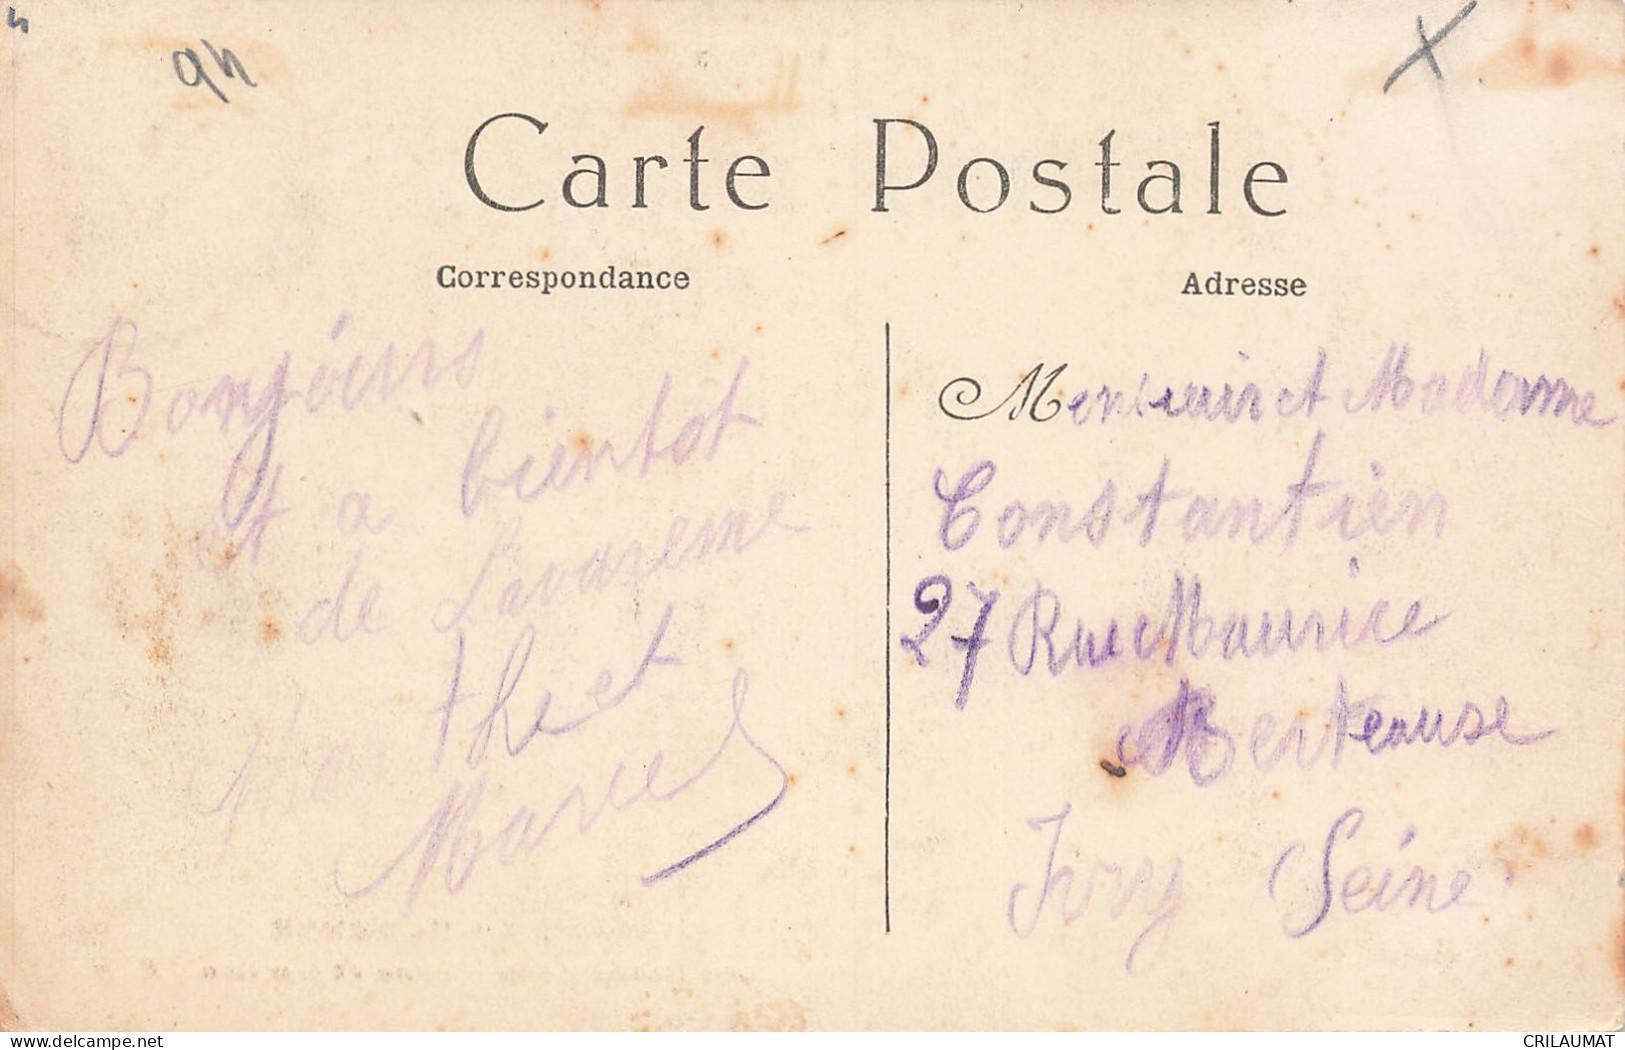 94
Carte Postale
Correspondance
Adresse
Bonjours
et a bientot
de Lavareme
Marthe et
Marcel
Monsieur et Madame
Constantien
27 Rue Maurice
Berteause
Ivry Seine
delcampe.net
CRILAUMAT